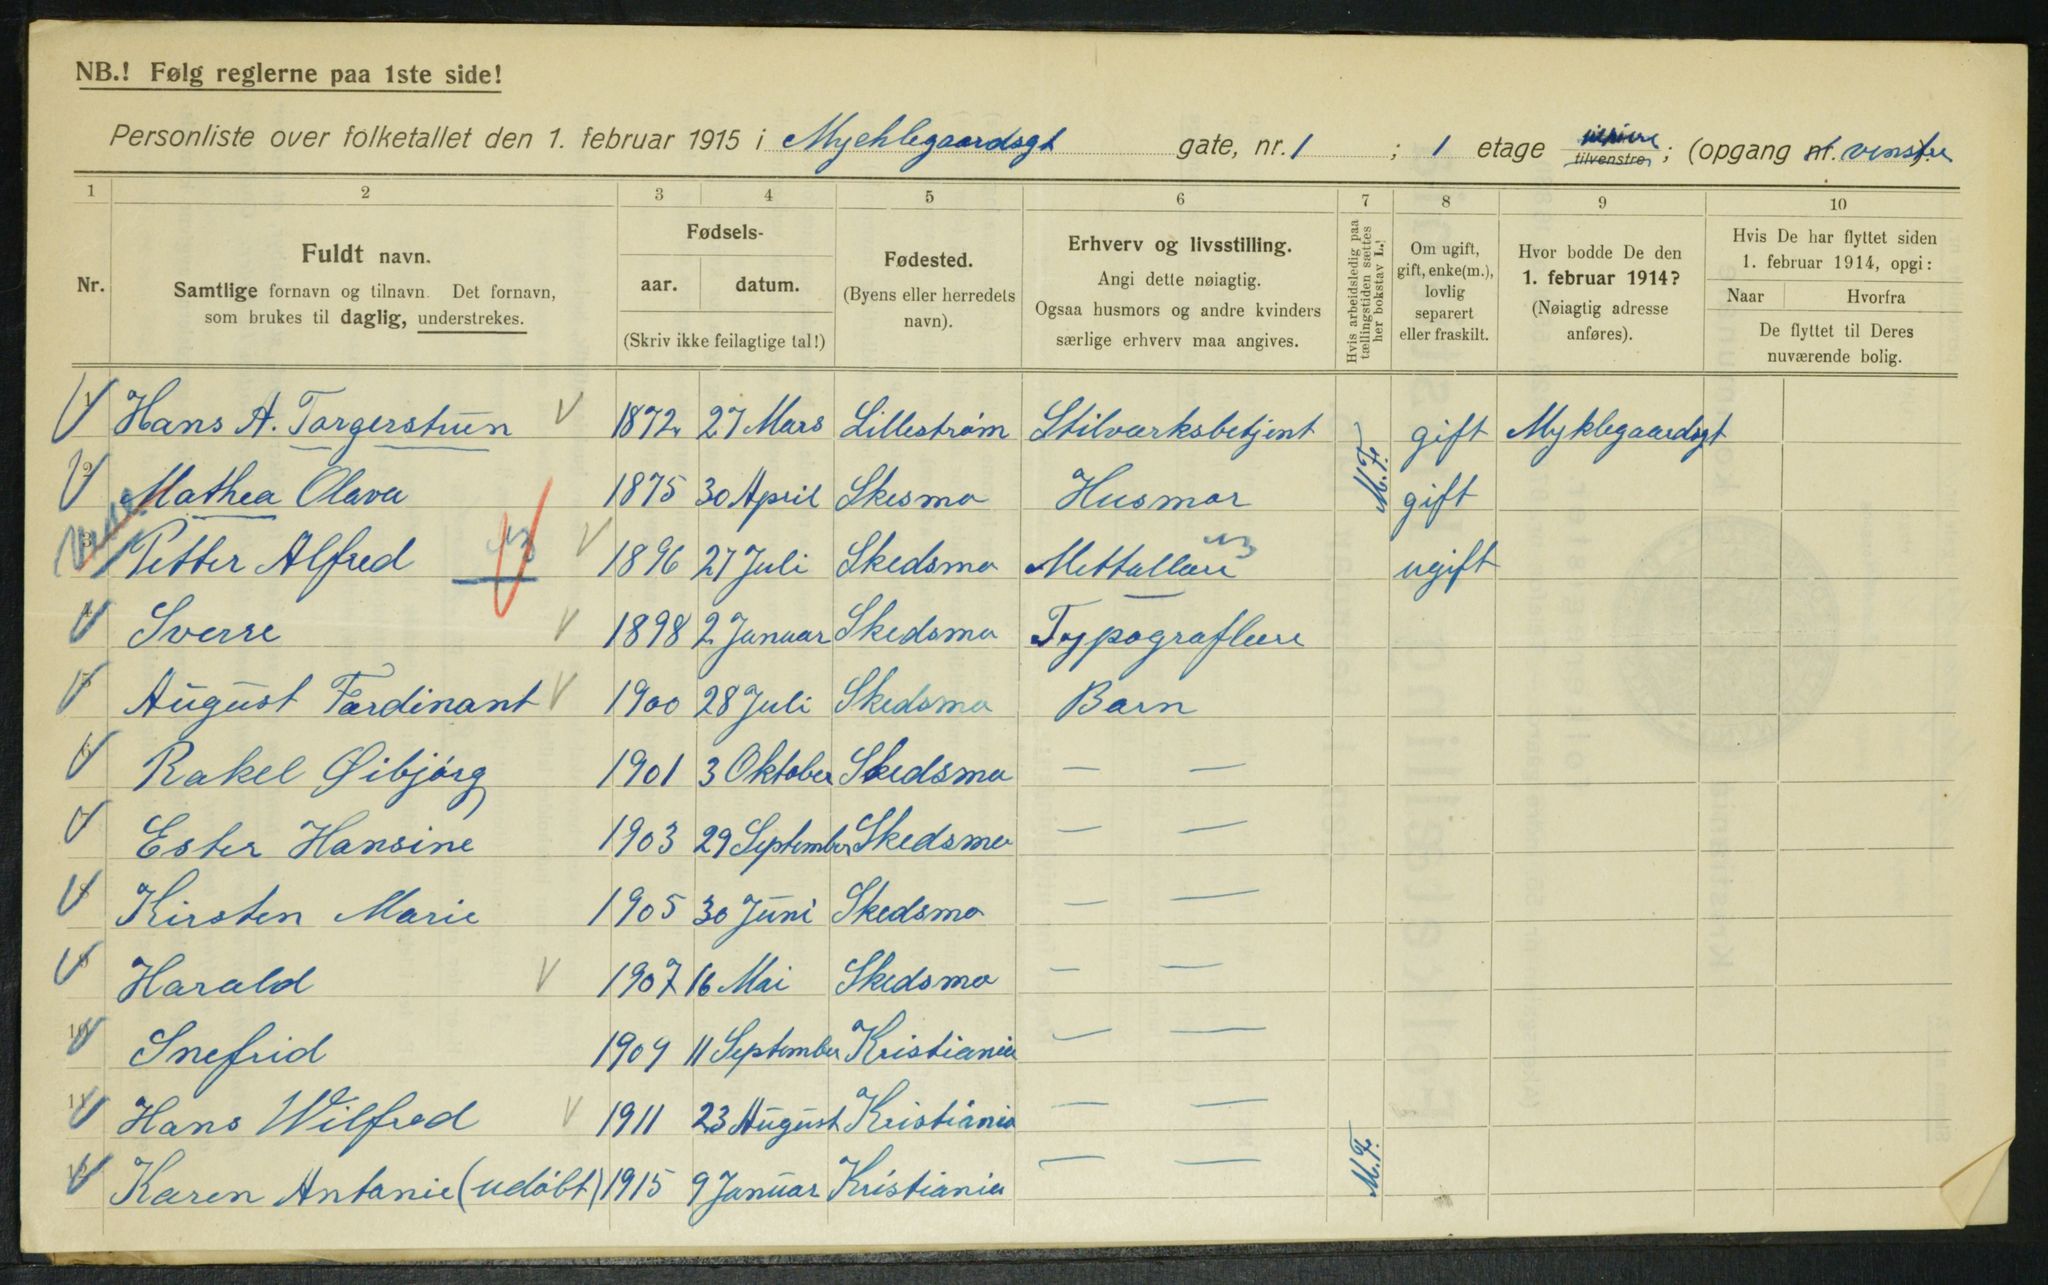 NB.! Følg reglerne paa 1ste side!
Personliste over folketallet den 1. februar 1915 i Myehlegaardsgt gate, nr. 1 ; 1 etage tilvenstre ; (opgang nr. venstre
1 2 3 4 5 6 7 8 9 10
Nr.
Fuldt navn.
Samtlige fornavn og tilnavn. Det fornavn,
som brukes til daglig, understrekes.
Fødsels-
aar. datum.
(Skriv ikke feilagtige tal!)
Fødested.
(Byens eller herredets
navn).
Erhverv og livsstilling.
Angi dette nøiagtig.
Ogsaa husmors og andre kvinders
særlige erhverv maa angives.
Hvis arbeidsledig paa
tællingstiden sættes
her bokstav L.!
Om ugift,
gift, enke(m.),
lovlig
separert
eller fraskilt.
Hvor bodde De den
1. februar 1914?
(Nøiagtig adresse
anføres).
Hvis De har flyttet siden
1. februar 1914, opgi:
Naar Hvorfra
De flyttet til Deres
nuværende bolig.
1 Hans A. Torgerstuen 1872 27 Mars Lillestrøm Stilværksbetjent gift Myklegaardsgt
2 Mathea Olava 1875 30 April Skesmo Husmor M.F. gift
3 Petter Alfred 1896 27 Juli Skedsmo Mettallære ugift
4 Sverre 1898 2 Januar Skedsmo Typograflære
5 August Færdinant 1900 28 Juli Skedsmo Barn
6 Rakel Øibjørg 1901 3 Oktober Skedsmo — —
7 Ester Hansine 1903 29 September Skedsmo — —
8 Kirsten Marie 1905 30 Juni Skedsmo — —
9 Harald 1907 16 Mai Skedsmo — —
10 Snefrid 1909 11 September Kristiania — —
11 Hans Wilfred 1911 23 August Kristiania — —
12 Karen Antonie (udöbt) 1915 9 Januar Kristiania — — M.F.